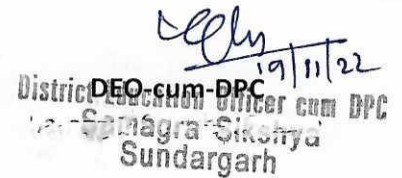 19/11/22
DEO-cum-DPC
District Education Officer cum DPC
Samagra Sikshya
Sundargarh